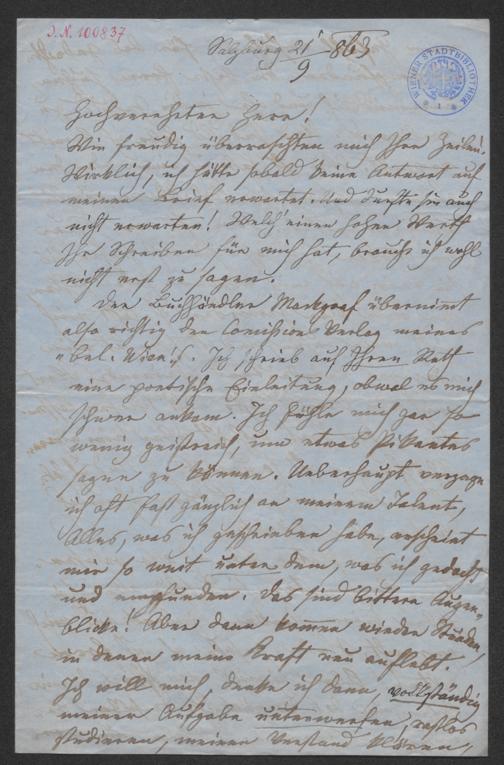 J. N. 100837
Salzburg 21/9 863
WIENER STADTBIBLIOTHEK
Hochverehrter Herr!
Wie freudig überraschten mich Ihre Zeilen!
Wirklich, ich hätte sobald keine Antwort auf
meinen Brief erwartet. Und durfte sie auch
nicht erwarten! Welch' einen hohen Werth
Ihr Schreiben für mich hat, brauche ich wohl
nicht erst zu sagen.
Der Buchhändler Markgraf übernimt
also richtig den Comissions Verlag meines
"bel. Wien's". Ich schrieb auf Ihren Rath
eine poetische Einleitung, obwol es mich
schwer ankam. Ich fühle mich gar so
wenig geistreich, um etwas Pikantes
sagen zu können. Ueberhaupt verzage
ich oft fast gänzlich an meinem Talent,
Alles, was ich geschrieben habe, erscheint
mir so weit unter dem, was ich gedacht
und empfunden. Das sind bittere Augen-
blicke! Aber dann kommen wieder Stunden,
in denen meine Kraft neu auflebt.
Ich will mich, denke ich dann, vollständig
meiner Aufgabe unterwerfen, rastlos
studieren, meinen Verstand klären,